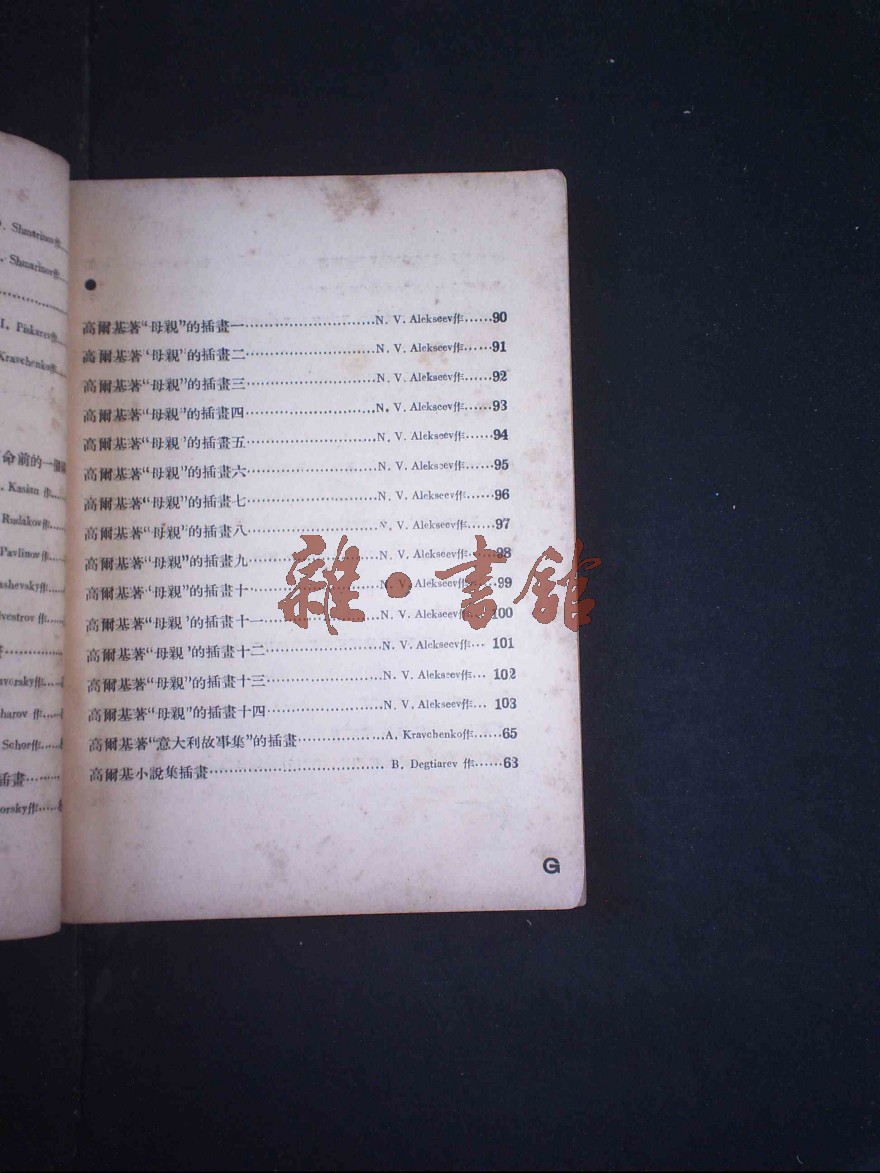 Shmarinov作
Shmarinov作
Piskarev作
Kravchenko作
命前的一個
Kasian 作
Rudakov作
Pavlinov作
ashevsky作
lvestrov 作
avorsky作
harov 作
Schor作
插畫
orsky作
●
高爾基著“母親”的插畫一……N. V. Alekseev作……90
高爾基著“母親”的插畫二……N. V. Alekseev作……91
高爾基著“母親”的插畫三……N. V. Alekseev作……92
高爾基著“母親”的插畫四……N. V. Alekseev作……93
高爾基著“母親”的插畫五……N. V. Alekseev作……94
高爾基著“母親”的插畫六……N. V. Alekseev作……95
高爾基著“母親”的插畫七……N. V. Alekseev作……96
高爾基著“母親”的插畫八……N. V. Alekseev作……97
高爾基著“母親”的插畫九……N. V. Alekseev作……98
高爾基著“母親”的插畫十……N. V. Alekseev作……99
高爾基著“母親”的插畫十一……N. V. Alekseev作… 100
高爾基著“母親”的插畫十二……N. V. Alekseev作… 101
高爾基著“母親”的插畫十三……N. V. Alekseev作… 102
高爾基著“母親”的插畫十四……N. V. Alekseev作… 103
高爾基著“意大利故事集”的插畫……A. Kravchenko作……65
高爾基小說集插畫……B. Degtiarev 作……63
G
雜·書館